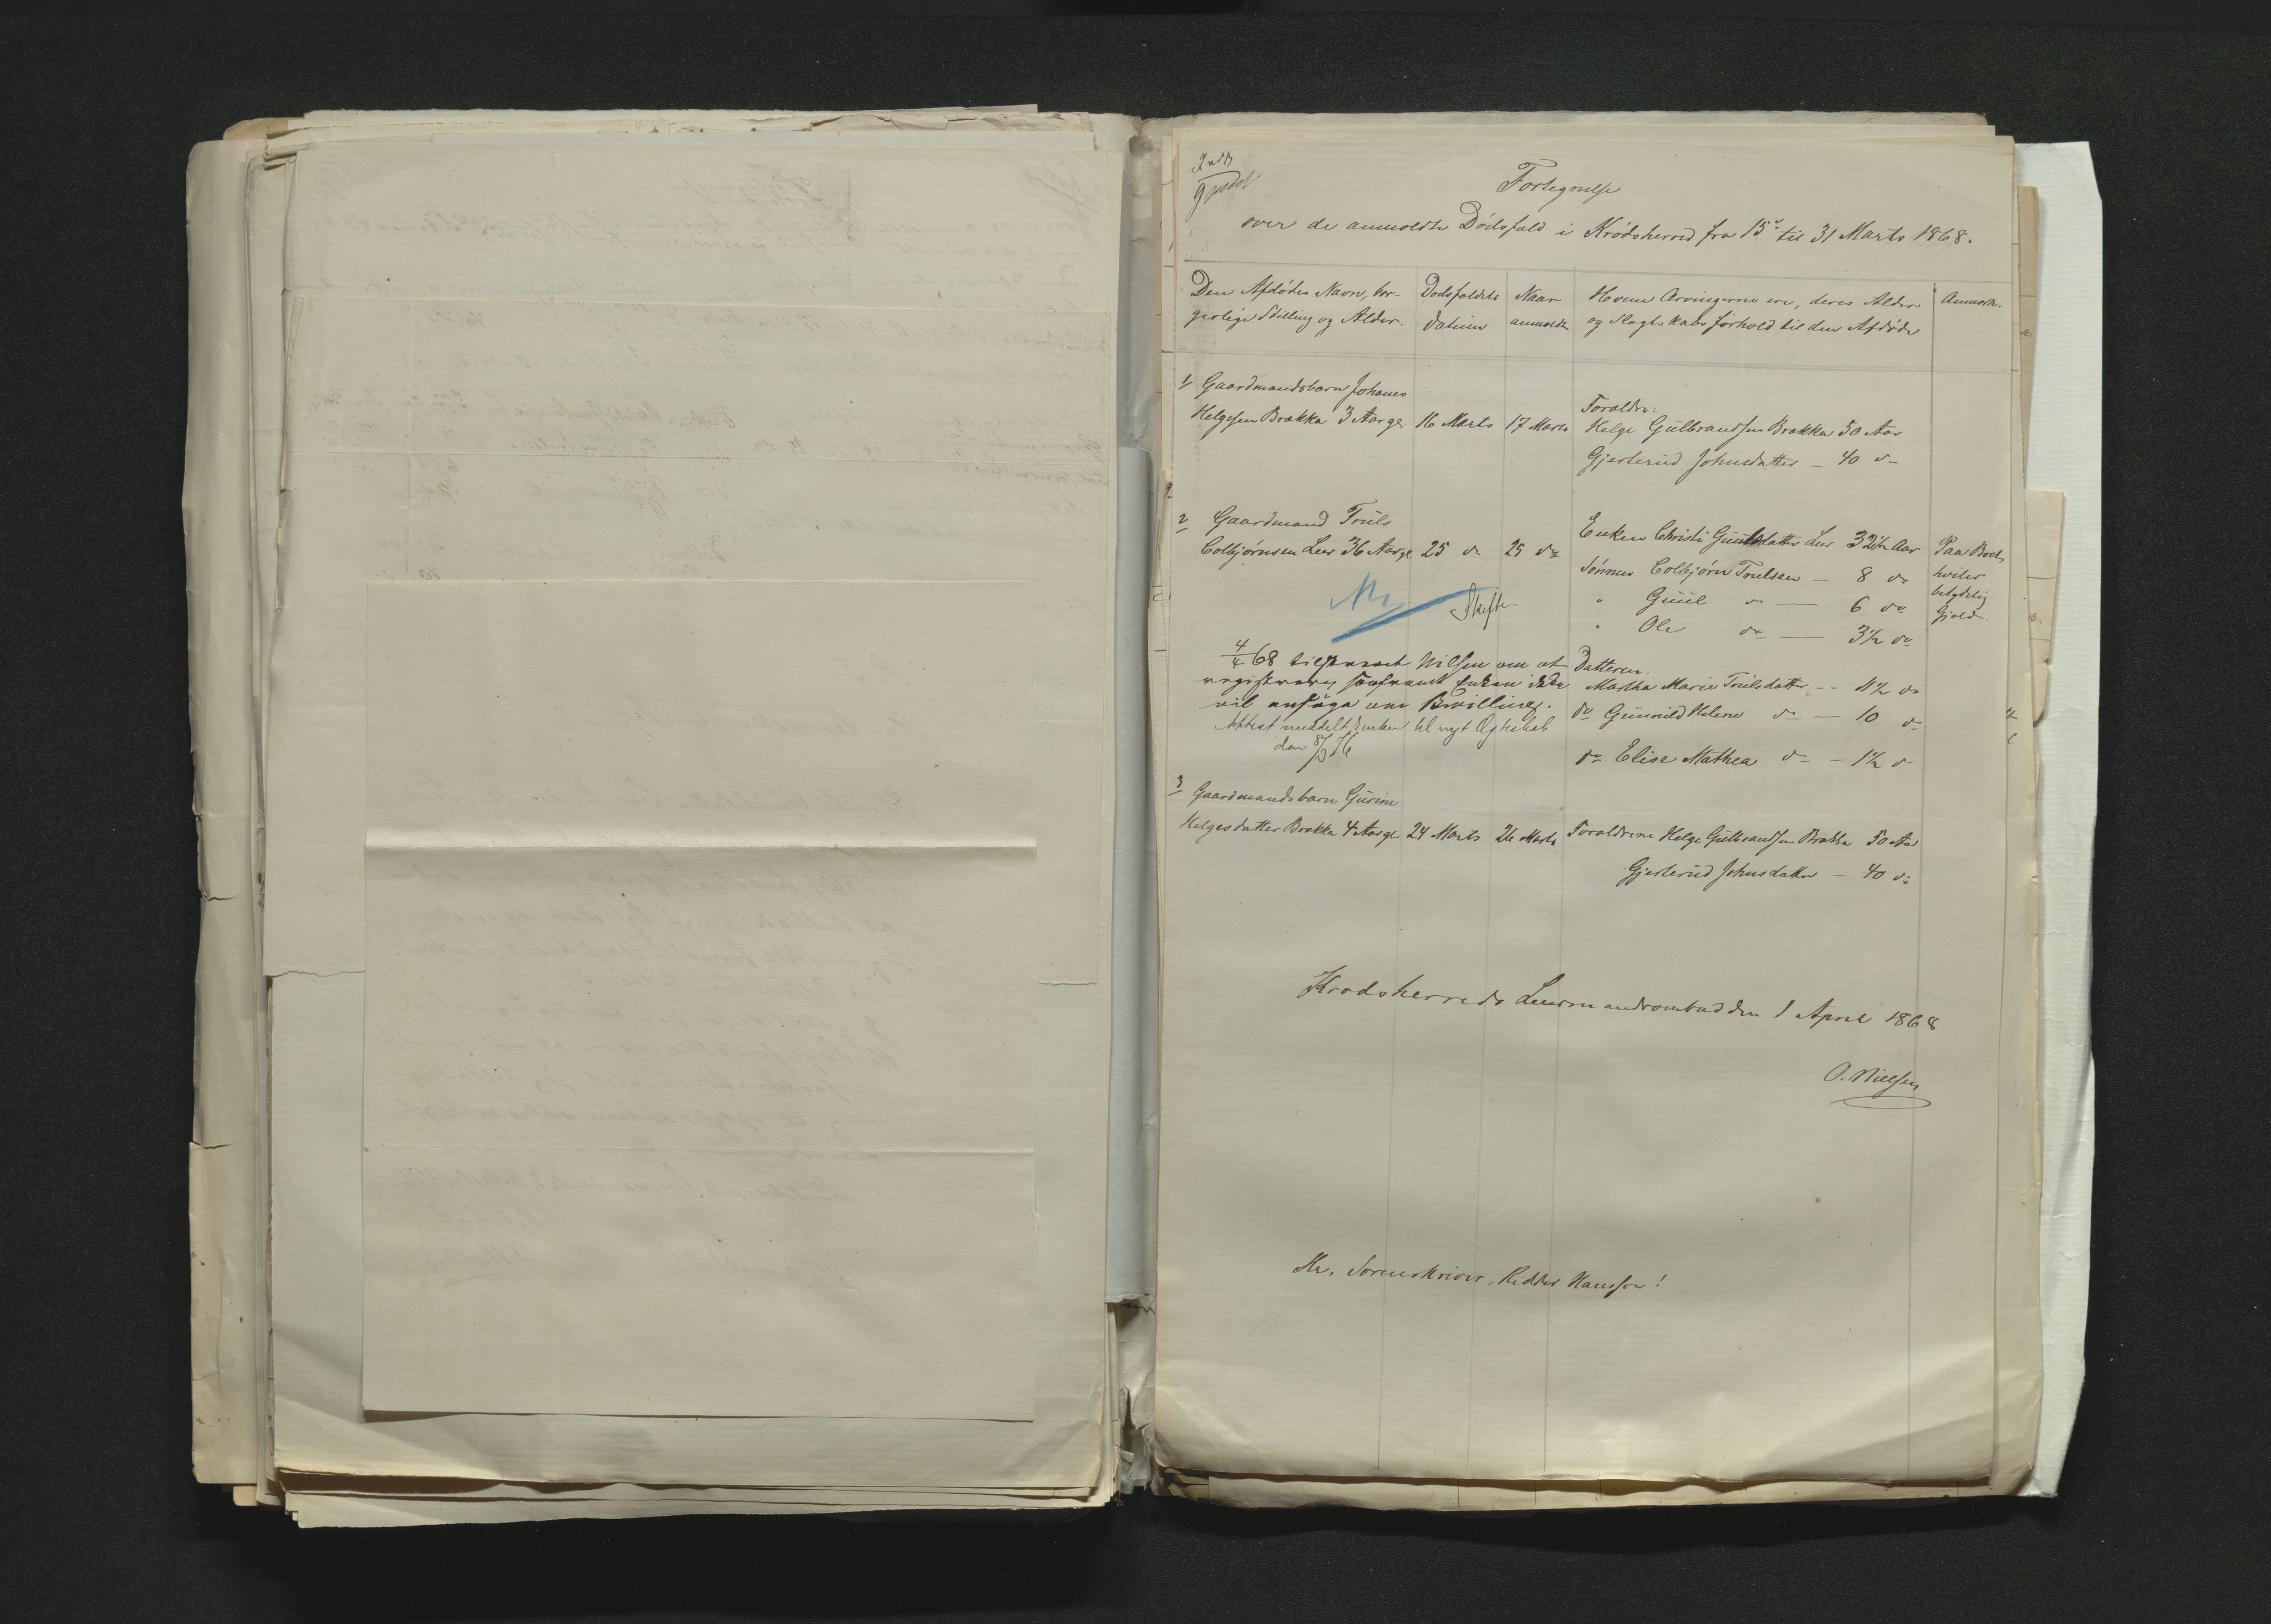 Fortegnelse
over de anmeldte Dødsfald i Krødsherred fra 15de til 31 Marts 1868.
Den Afdødes Navn, bor-
gerlige Stilling og Alder.
Dødsfaldets
Datum
Naar
anmeldt
Hvem Arvingerne ere, deres Alder
og Slægtskabsforhold til den Afdøde
Anmærk.
1 Gaardmandsbarn Johanes
Helgesen Brækka 3 Aar gl. 16 Marts 17 Marts
Forældre:
Helge Gulbrandsen Brækka 50 Aar
Gjertrud Johnsdatter - 40 do
2 Gaardmand Truls
Colbjørnsen Leer 36 Aar gl. 25 do 25 do
Enken Christi Guulsdatter Leer 32½ Aar
Sønner Colbjørn Trulsen - 8 do
" Guul do - 6 do
" Ole do - 3½ do
Paa Boet
hviler
betydelig
Gjæld.
Skifte.
4/4 68 tilskrevet Nilsen om at
registrere saafremt Enken ikke
vil ansøge om Bevilling.
Attest meddelt Enken til nyt Ægteskab
den 8/ 76
Døttrene
Martha Marie Trulsdatter - 11½ do
do Gunnild Helene do - 10 do
do Elise Mathea do - 1½ do
3 Gaardmandsbarn Gurine
Helgesdatter Brækka 4 Aar gl. 24 Marts 26 Marts
Forældrene Helge Gulbrandsen Brækka 50 Aar
Gjertrud Johnsdatter - 40 do
Krødsherreds Lensmandsombud den 1 April 1868
O. Nielsen
Hr. Sorenskriver, Ridder Hansson!